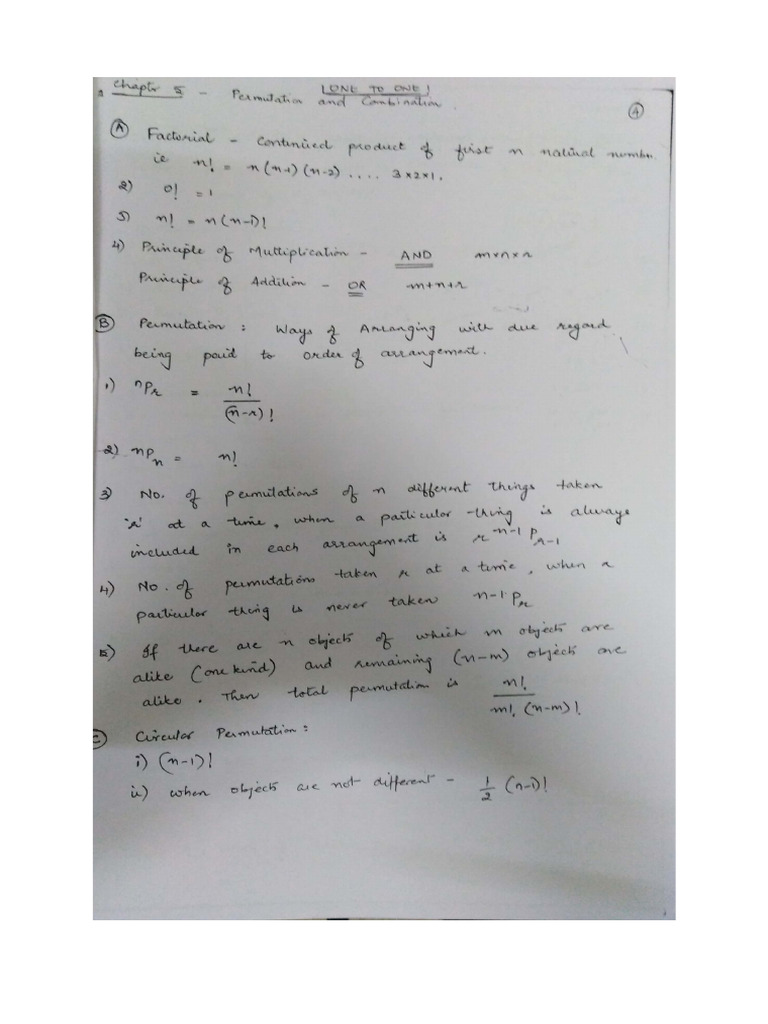 Chaptr 5 - Permutation and Combination. [ONE TO ONE]
4
A Factorial - Continued product of first n natural number.
ie n! = n(n-1)(n-2) .... 3×2×1.
2) 0! = 1
3) n! = n(n-1)!
4) Principle of Multiplication - AND m×n×r
Principle of Addition - OR m+n+r
B Permutation : Ways of Arranging with due regard
being paid to order of arrangement.
1) nPr = n! / (n-r)!
2) nPn = n!
3) No. of permutations of n different things taken
'r' at a time, when a particular thing is always
included in each arrangement is r n-1 P r-1
4) No. of permutations taken r at a time, when a
particular thing is never taken n-1 Pr
5) If there are n objects of which m objects are
alike (one kind) and remaining (n-m) objects are
alike. Then total permutation is n! / m! (n-m)!
C Circular Permutation:
i) (n-1)!
ii) when objects are not different - 1/2 (n-1)!